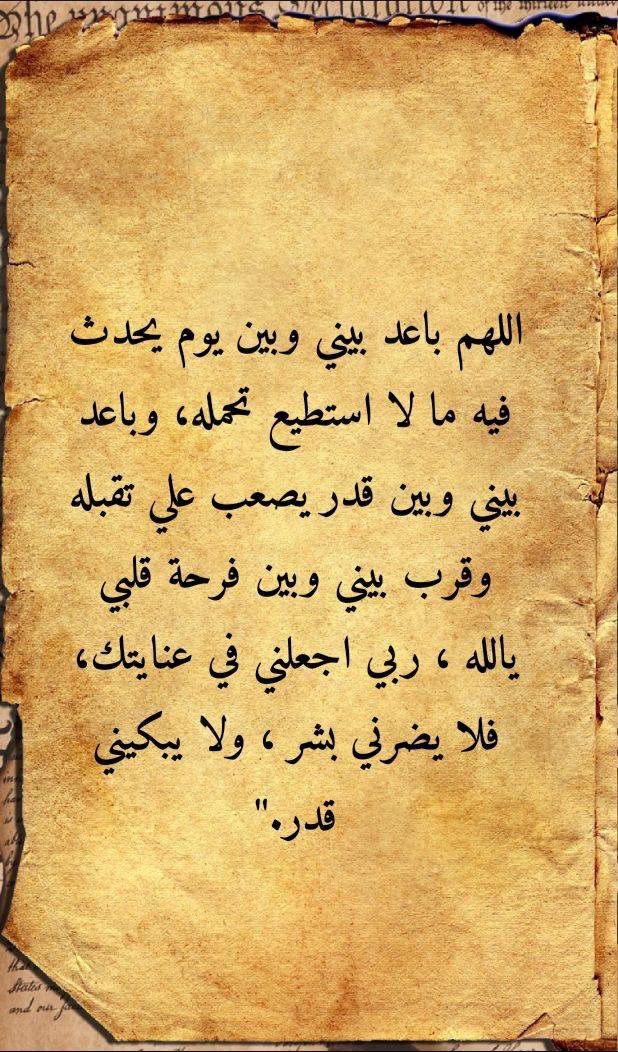 The unanimous Declaration of the thirteen united
اللهم باعد بيني وبين يوم يحدث
فيه ما لا استطيع تحمله، وباعد
بيني وبين قدر يصعب علي تقبله
وقرب بيني وبين فرحة قلبي
يالله ، ربي اجعلني في عنايتك،
فلا يضرني بشر ، ولا يبكيني
قدر."
that
States
and our